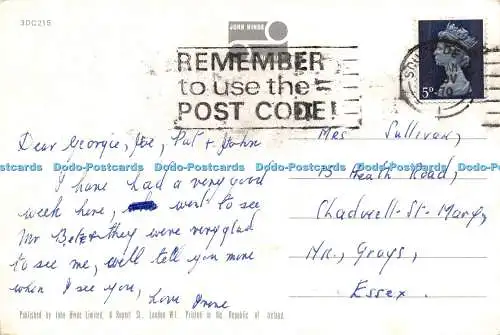 3DC219
JOHN HINDE
REMEMBER
to use the
POST CODE!
5D
Dear Georgie, Joe, Pat & John
I have had a very good
week here, went to see
Mr B they were very glad
to see me, will tell you more
when I see you, Love Irene
Mrs Sullivan,
15 Heath Road,
Chadwell-St-Mary,
NR, Grays,
Essex.
Dodo-Postcards Dodo-Postcards Dodo-Postcards Dodo-Postcards Dodo-Postcards
Published by John Hinde Limited, 6 Rupert St., London W1. Printed in the Republic of Ireland.